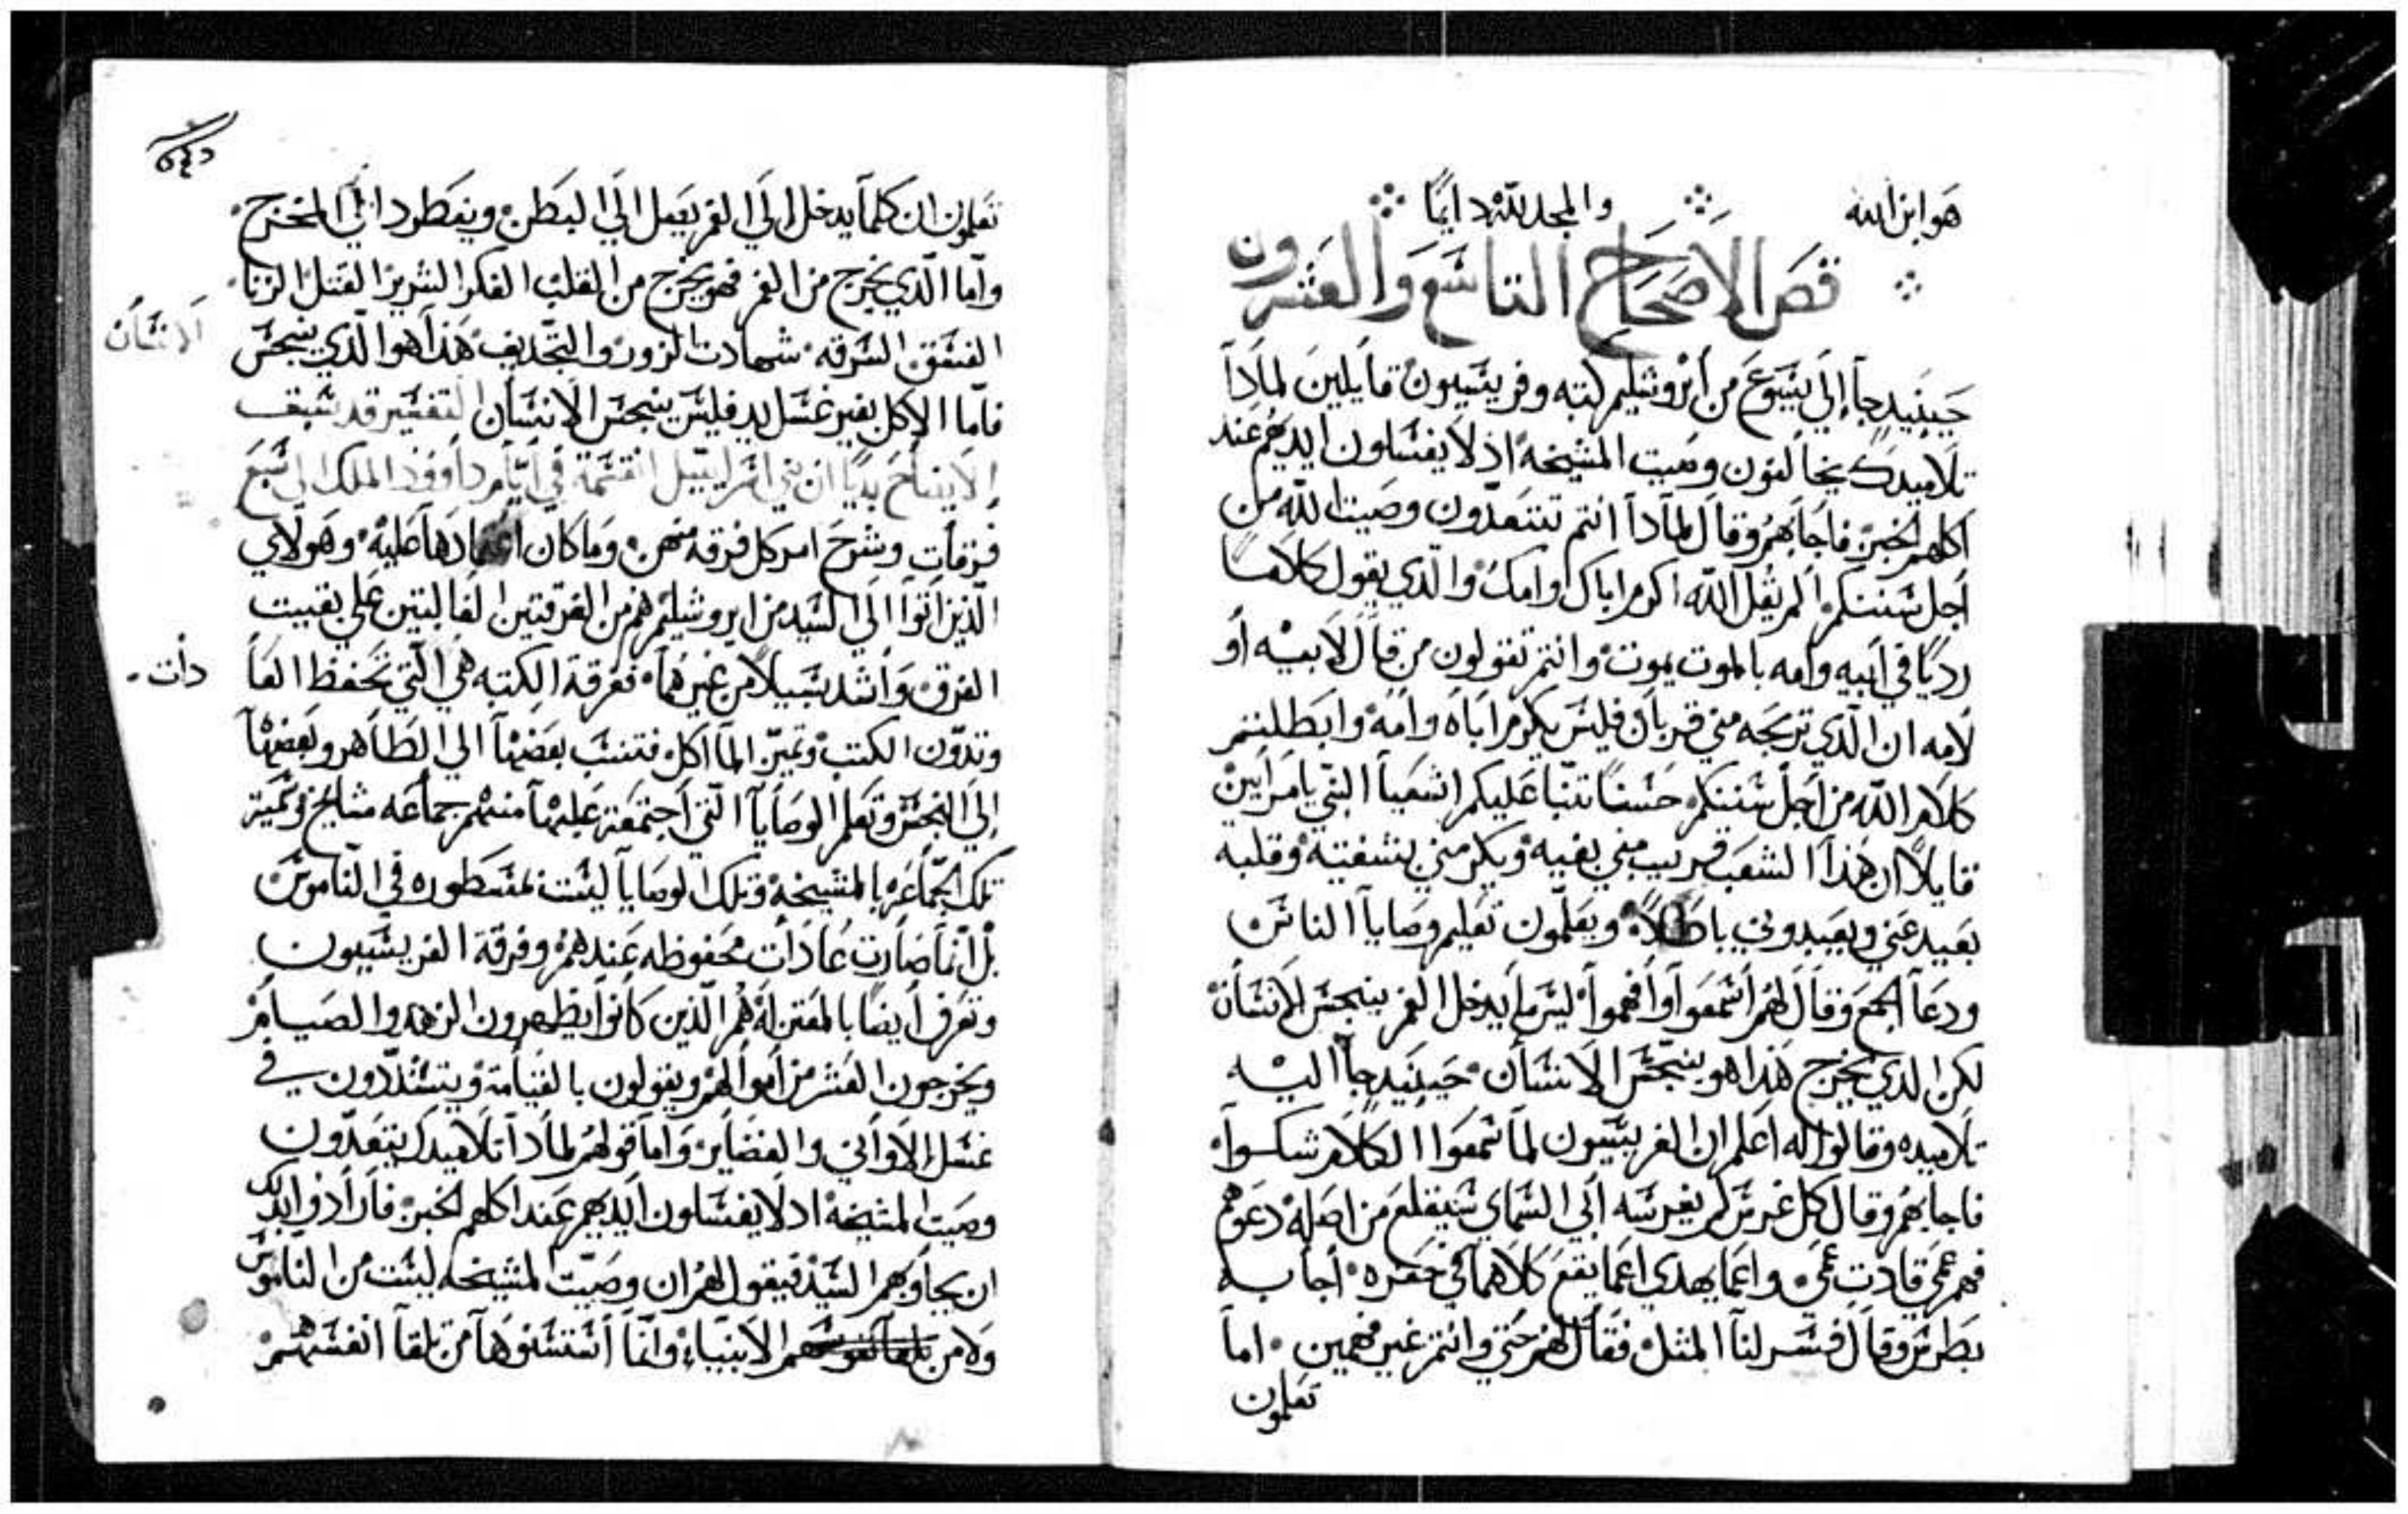 هو ابن الله والمجد لله دايمًا
قص الاصحاح التاسع والعشرون
حينيد جآ إلى يسوع من أيروشليم كتبه وفريسيون قايلين لمادآ
تلاميدك يخالفون وصيت المشيخه اذ لا يغسلون ايديهم عند
اكلهم الخبز فاجابهم وقال لمادآ انتم تتعدون وصيت الله من
أجل سنتكم ألم يقل الله اكرم اباك وامك والذي يقول كلامًا
رديًا في أبيه وامه بالموت يموت وانتم تقولون من قال لابيه أو
لامه ان الذي تربحه مني قربان فليس يكرم أباه وامه وابطلتم
كلام الله من أجل سنتكم حسنًا تنبا عليكم اشعيا النبي يا مرايين
قايلاً ان هذا الشعب قريب مني بفيه ويكرمني بشفتيه وقلبه
بعيد عني ويعبدوني باطلاً ويعلمون تعليم وصايا الناس
ودعآ الجمع وقال لهم أسمعوا وأفهموا ليس ما يدخل الفم ينجس الانسان
لكن الدي يخرج هذا هو ينجس الانسان حينيد جآ اليه
تلاميده وقالوا له أعلم ان الفريسيون لما سمعوا الكلام شكوا
فاجابهم وقال كل غرس لم يغرسه أبي السماي سيقلع من اصله دعوهم
فهم عمي قادت عمي واعما يهدي اعما يقع كلاهما في حفره أجابه
بطرس وقال فسر لنا المثل فقال لهم حتي وانتم غير فهمين اما
تعلمون
٥٤٥
تعلمون ان كلما يدخل إلى الفم يصل إلى البطن وينطرد إلى المخرج
وأما الذي يخرج من الفم فهو يخرج من القلب الفكر الشرير القتل الزنا
الفسق السرقه شهادت الزور والتجديف هذا هو الذي ينجس
الانسان
فاما الاكل بغير غسل يد فليس ينجس الانسان التفسير قد سبف
الايضاح بديًا ان بني اسرايييل انقسمة في أيام داوود الملك الى سبع
فرقات وشرح امر كل فرقه منهن وما كان اعتمادها عليه وهولاي
الذين أتوا الى السيد من ايروشليم هم من الفرقتين الغالبتين علي بقيت
الفرق وأشد سبيلاً من غيرهما ففرقة الكتبه هي التي تحفظ الفا
دات
وتدون الكتب وتميز المآاكل فتنسب بعضها الى الطاهر وبعضها
إلى النجس وتعلم الوصايا التي أجتمعت عليها منهم جماعه مشايخ وتميز
تلك الجماعه بالمشيخه وتلك الوصايا ليست مسطوره في الناموس
بل انما صارت عادات محفوظه عندهم وفرقة الفريسيون
وتعرف أيضًا بالمعتزله هم الذين كانوا يظهرون الزهد والصيام
ويخرجون العشر من أموالهم ويقولون بالقيامة ويتشددون في
غسل الاواني والغضاير وأما قولهم لمادآ تلاميدك يتعدون
وصيت المشيخه اد لا يغسلون أيديهم عند اكلهم الخبز فأرادوا بدلك
ان يجاوبهم السيد فيقول لهم ان وصيت المشيخه ليست من الناموس
ولا من الانبياء وانما أستسنوها من تلقآ انفسهم